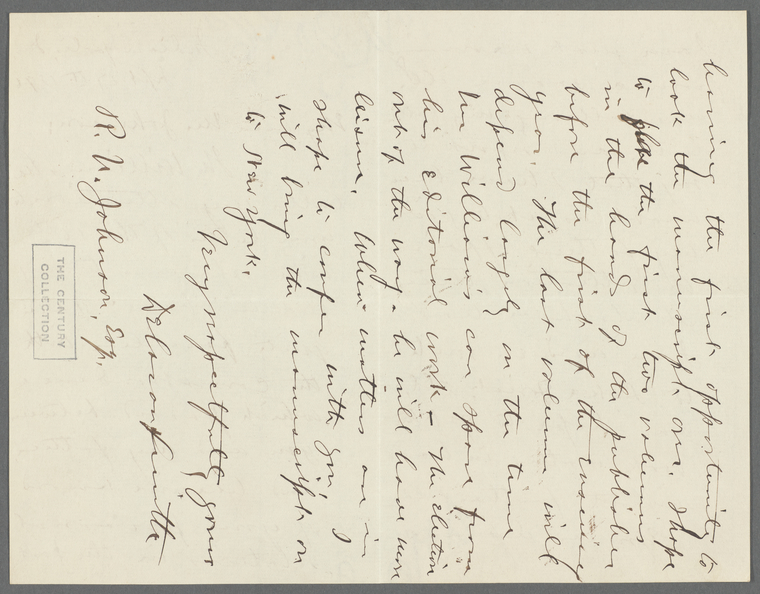 having the first opportunity to
look the manuscript over. I hope
to place the first two volumes
in the hands of the publisher
before the first of the ensuing
year. The last volumes will
depend largely on the time
Mr Williams can spare from
his editorial work — The election
out of the way — he will have more
leisure. When matters are in
shape to confer with you, I
will bring the manuscript on
to New York.
Very respectfully yours
R. U. Johnson, Esq.
THE CENTURY
COLLECTION